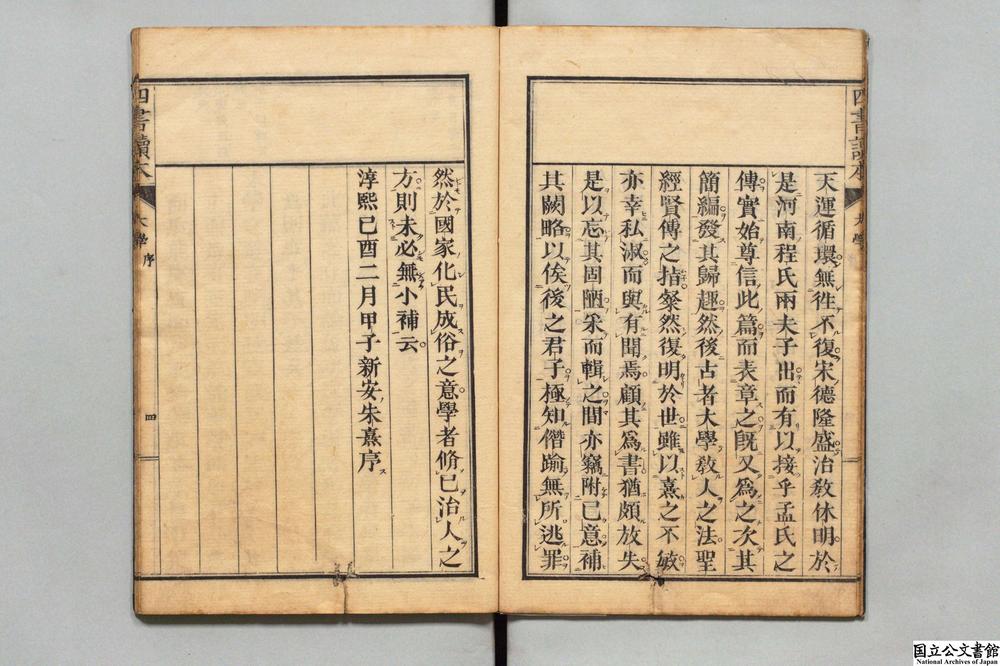 四書讀本
大學
天運循環無往不復宋德隆盛治敎休明於
是河南程氏兩夫子出而有以接乎孟氏之
傳實始尊信此篇而表章之旣又爲之次其
簡編發其歸趣然後古者大學敎人之法聖
經賢傳之指粲然復明於世雖以熹之不敏
亦幸私淑而與有聞焉顧其爲書猶頗放失
是以忘其固陋采而輯之間亦竊附己意補
其闕略以俟後之君子極知僭踰無所逃罪
然於國家化民成俗之意學者脩己治人之
方則未必無小補云
淳熙己酉二月甲子新安朱熹序
四書讀本
大學序
四
国立公文書館
National Archives of Japan